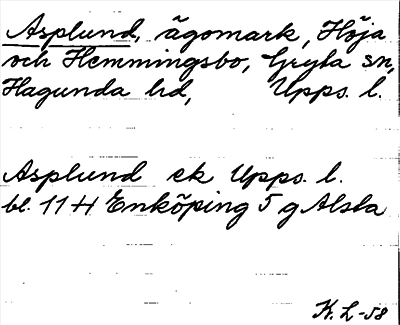 Asplund, ägomark, Höja
och Hemmingsbo, Gryta sn,
Hagunda hd, Upps. l.
Asplund ek Upps. l.
bl. 11 H Enköping 5 g Alsta
K. L -58